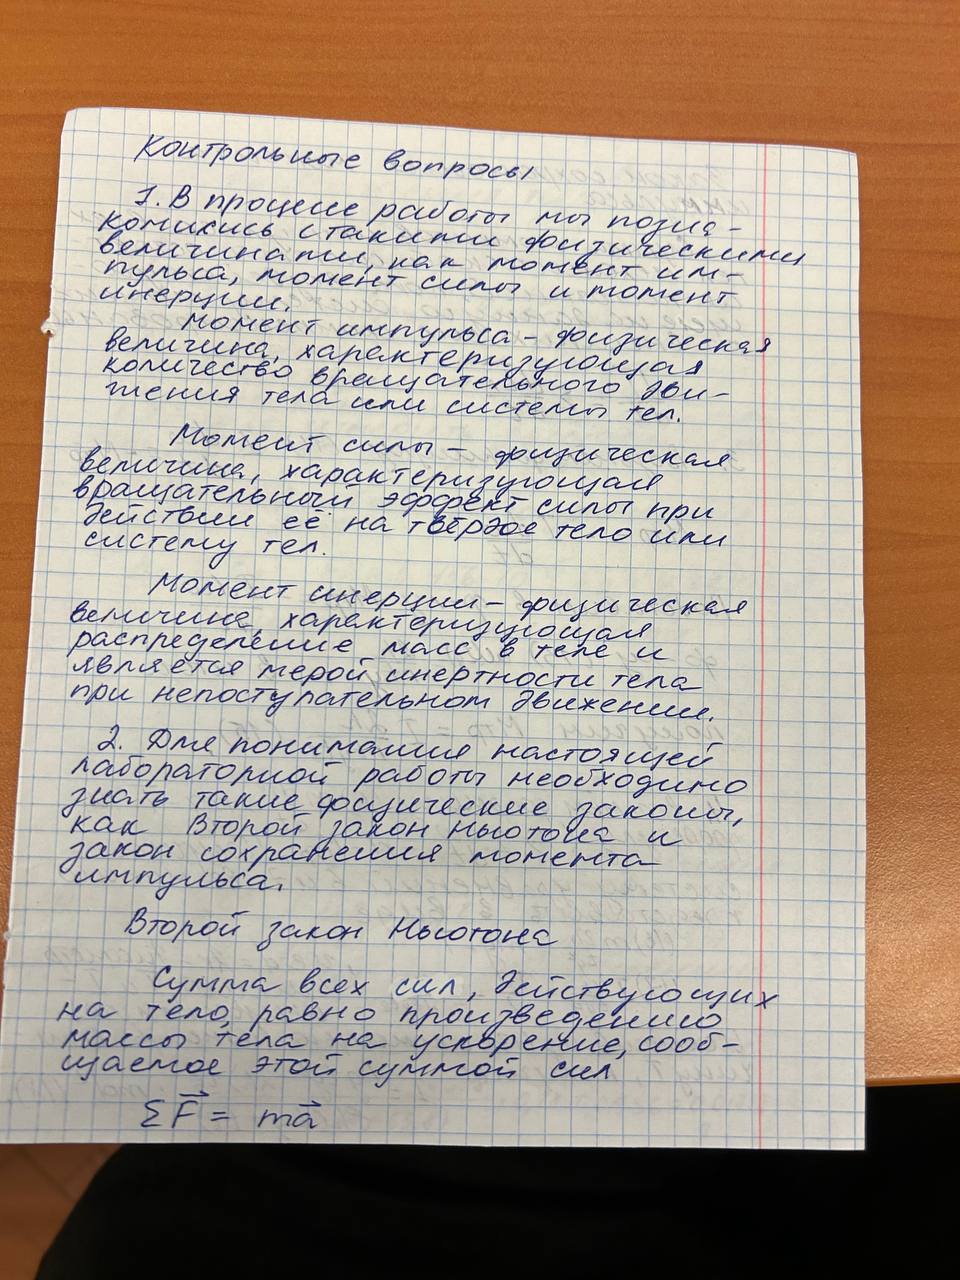 Контрольные вопросы
1. В процессе работы мы позна-
комились с такими физическими
величинами, как момент им-
пульса, момент силы и момент
инерции.
Момент импульса - физическая
величина, характеризующая
количество вращательного дви-
жения тела или системы тел.
Момент силы - физическая
величина, характеризующая
вращательный эффект силы при
действии её на твёрдое тело или
систему тел.
Момент инерции - физическая
величина, характеризующая
распределение масс в теле и
является мерой инертности тела
при непоступательном движении.
2. Для понимания настоящей
лабораторной работы необходимо
знать такие физические законы,
как Второй закон Ньютона и
закон сохранения момента
импульса.
Второй закон Ньютона
Сумма всех сил, действующих
на тело, равно произведению
массы тела на ускорение, сооб-
щаемое этой суммой сил
ΣF⃗ = ma⃗